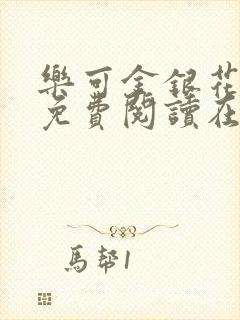 樂可金銀花
免費閱讀在
馬幫1